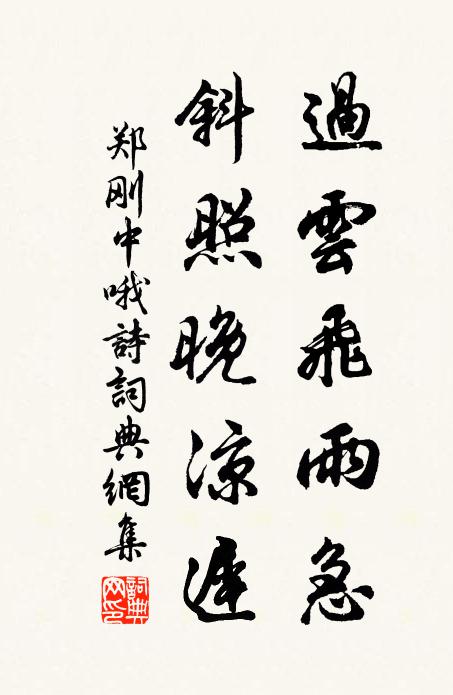 過雲飛雨急
斜照晚涼遲
郑刚中哦詩詞典網集
詞典网